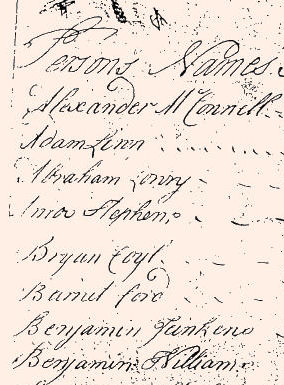 Persons Names
Alexander McConnell
Adam Linn
Abraham Lowry
Amos Stephens
Bryan Coyl
Daniel Ford
Benjamin Junkens
Benjamin William